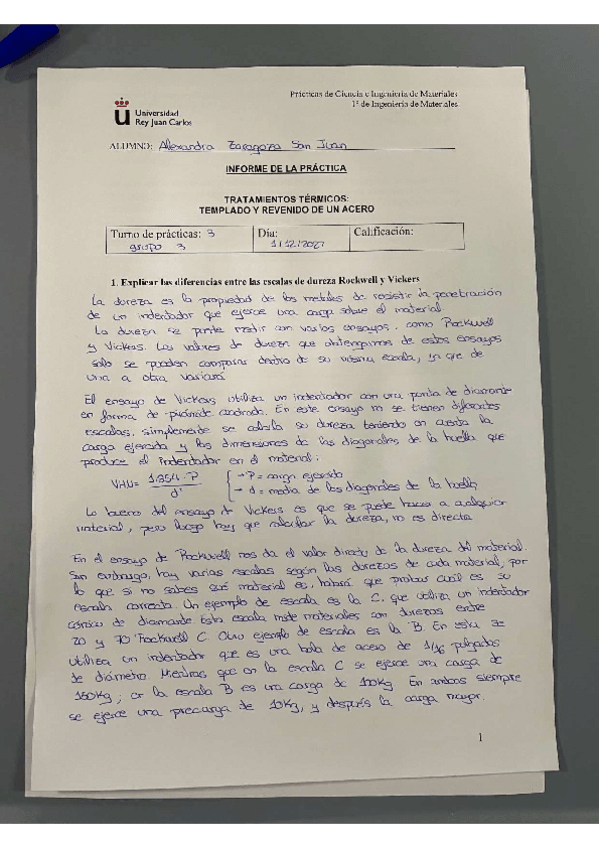 Prácticas de Ciencia e Ingeniería de Materiales
1º de Ingeniería de Materiales
Universidad
Rey Juan Carlos
ALUMNO: Alexandra Zaragoza San Juan
INFORME DE LA PRÁCTICA
TRATAMIENTOS TÉRMICOS:
TEMPLADO Y REVENIDO DE UN ACERO
Turno de prácticas: 3
grupo 3
Día:
1/12/2021
Calificación:
1. Explicar las diferencias entre las escalas de dureza Rockwell y Vickers
La dureza es la propiedad de los metales de resistir la penetración
de un indentador que ejerce una carga sobre el material.
La dureza se puede medir con varios ensayos, como Rockwell
y Vickers. Los valores de dureza que obtengamos de estos ensayos
solo se pueden comparar dentro de su misma escala, ya que de
una a otra variará
El ensayo de Vickers utiliza un indentador con una punta de diamante
en forma de pirámide cuadrada. En este ensayo no se tienen diferentes
escalas, simplemente se calcula su dureza teniendo en cuenta la
carga ejercida y las dimensiones de las diagonales de la huella que
produce el indentador en el material:
VHN = 1.854 · P / d² → P = carga ejercida
→ d = media de las diagonales de la huella
Lo bueno del ensayo de Vickers es que se puede hacer a cualquier
material, pero luego hay que calcular la dureza, no es directa
En el ensayo de Rockwell nos da el valor directo de la dureza del material.
Sin embargo, hay varias escalas según las durezas de cada material, por
lo que si no sabes qué material es, habrá que probar cuál es su
escala correcta. Un ejemplo de escala es la C, que utiliza un indentador
cónico de diamante. Esta escala mide materiales con durezas entre
20 y 70 Rockwell C. Otro ejemplo de escala es la B. En esta se
utiliza un indentador que es una bola de acero de 1/16 pulgadas
de diámetro. Mientras que en la escala C se ejerce una carga de
150Kg; en la escala B es una carga de 100Kg. En ambas siempre
se ejerce una precarga de 10Kg, y después la carga mayor.
1